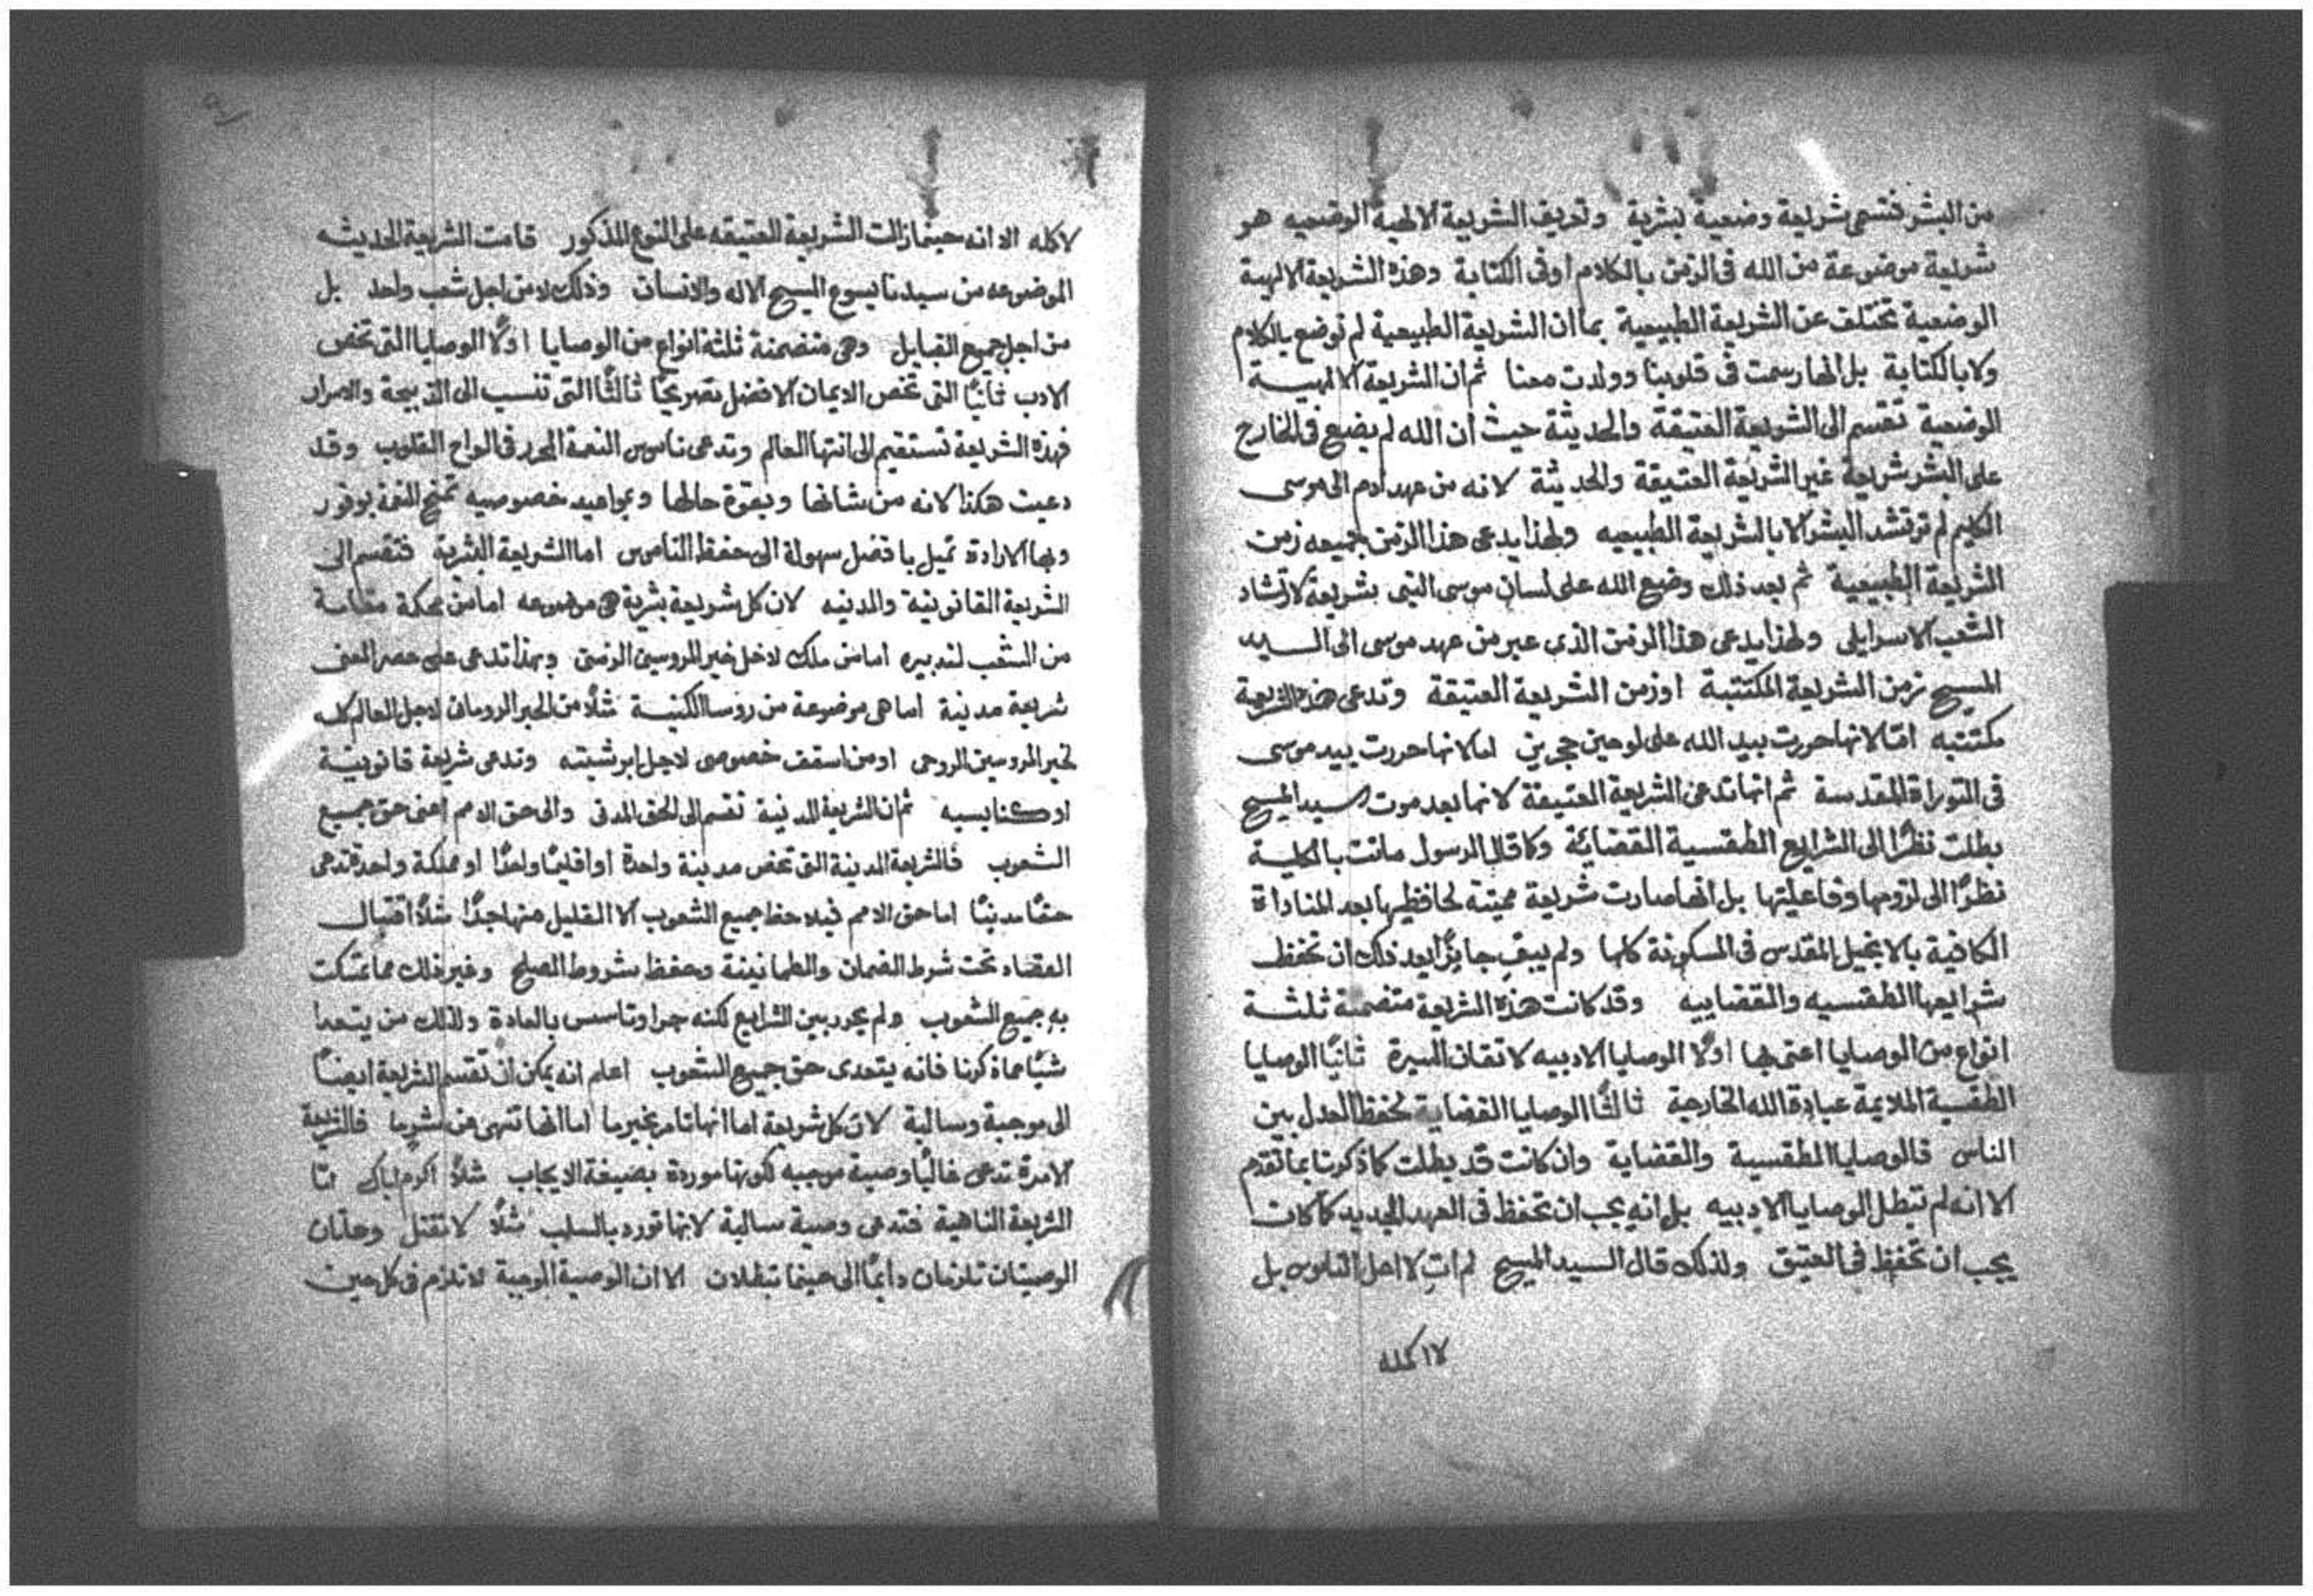 من البشر فتسمى شريعة وضعية بشرية وتعريف الشريعة الالهية الوضعيه هو
شريعة موضوعة من الله فى الزمن بالكلام اوفى الكتابة وهذه الشريعة الالهية
الوضعية تختلف عن الشريعة الطبيعية بما ان الشريعة الطبيعية لم توضع بالكلام
ولا بالكتابة بل انها رسمت فى قلوبنا وولدت معنا ثم ان الشريعة الالهية
الوضعية تقسم الى الشريعة العتيقة والحديثة حيث ان الله لم يضع فى الخارج
على البشر شريعة غير الشريعة العتيقة والحديثة لانه من عهد ادم الى موسى
الكليم لم ترتشد البشر الا بالشريعة الطبيعيه ولهذا يدعى هذا الزمن جميعه زمن
الشريعة الطبيعية ثم بعد ذلك وضع الله على لسان موسى النبى بشريعة لارتشاد
الشعب الاسرايلى ولهذا يدعى هذا الزمن الذى عبر من عهد موسى الى السيد
المسيح زمن الشريعة المكتتبة اوزمن الشريعة العتيقة وتدعى هذه الشريعة
مكتتبه امّا لانها حررت بيد الله على لوحين حجرين اما لانها حررت بيد موسى
فى التوراة المقدسة ثم انها تدعى الشريعة العتيقة لانها بعد موت السيد المسيح
بطلت نظرًا الى الشرايع الطقسية القضائة وكما قال الرسول ماتت بالكلية
نظرًا الى لزومها وفاعليتها بل انها صارت شريعة مميتة لحافظيها بعد المناداة
الكافية بالانجيل المقدس فى المسكونة كلها ولم يبق جايزًا بعد ذلك ان تحفظ
شرايعها الطقسيه والقضاييه وقد كانت هذه الشريعة متضمنة ثلثة
انواع من الوصايا اعنى بها اولًا الوصايا الادبيه لاتقان السيرة ثانيًا الوصايا
الطقسية الملايمة عبادة الله الخارجة ثالثًا الوصايا القضاية لحفظ العدل بين
الناس فالوصايا الطقسية والقضاية وان كانت قد بطلت كما ذكرنا بما تقدم
الا انه لم تبطل الوصايا الادبيه بل انه يجب ان تحفظ فى العهد الجديد كما كان
يجب ان تحفظ فى العتيق ولذلك قال السيد المسيح لم ات لاحل الناموس بل
لاكمله
لاكمله الا انه حينما زالت الشريعة العتيقه على النوع المذكور قامت الشريعة الحديثه
الموضوعه من سيدنا يسوع المسيح الاله والانسان وذلك لا من اجل شعب واحد بل
من اجل جميع القبايل وهى متضمنة ثلثة انواع من الوصايا اولًا الوصايا التى تخص
الادب ثانيًا التى تخص الايمان الافضل تصريحًا ثالثًا التى تنسب الى الذبيحة والاسرار
فهذه الشريعة تستقيم الى انتها العالم وتدعى ناموس النعمة المحرر فى الواح القلوب وقد
دعيت هكذا لانه من شانها وبقوة حالها وبمواعيد خصوصيه تمنح النعمة بوفور
وبها الارادة تميل بافضل سهولة الى حفظ الناموس اما الشريعة البشرية فتقسم الى
الشريعة القانونية والمدنيه لان كل شريعة بشرية هى موضوعه اما من محكمة مقامة
من الشعب لتدبيره اما من ملك لاجل خير المروسين الزمنى وبهذا تدعى على حصر المعنى
شريعة مدنية اما هى موضوعة من روسا الكنيسة مثلًا من الحبر الرومانى لاجل العالم كله
لخير المروسين الروحى او من اسقف خصوصى لاجل ابرشيته وتدعى شريعة قانونية
او كنايسيه ثم ان الشريعة المدنية تقسم الى الحق المدنى والى حق الامم اعنى حق جميع
الشعوب فالشريعة المدنية التى تخص مدينة واحدة او اقليمًا واحدًا او مملكة واحدة تدعى
حقًا مدنيًا اما حق الامم فيلاحظ جميع الشعوب الا القليل منها جدًا مثلًا اقتبال
القصاد تحت شرط الضمان والطمانينة وحفظ شروط الصلح وغير ذلك مما تمسكت
به جميع الشعوب ولم يحرر بين الشرايع لكنه جرا وتاسس بالعادة ولذلك من يتعدا
شيًا مما ذكرنا فانه يتعدى حق جميع الشعوب اعلم انه يمكن ان تقسم الشريعة ايضًا
الى موجبة وسالبة لان كل شريعة اما انها تامر بخير ما اما انها تنهى عن شر ما فالشريعة
الامرة تدعى غالبًا وصية موجبه لكونها موردة بصيغة الايجاب مثلًا اكرم اباك امّا
الشريعة الناهية فتدعى وصية سالبة لانها تورد بالسلب مثلًا لا تقتل وهاتان
الوصيتان تلزمان دايمًا الى حينما تبطلان الا ان الوصية الموجبة لا تلزم فى كل حين